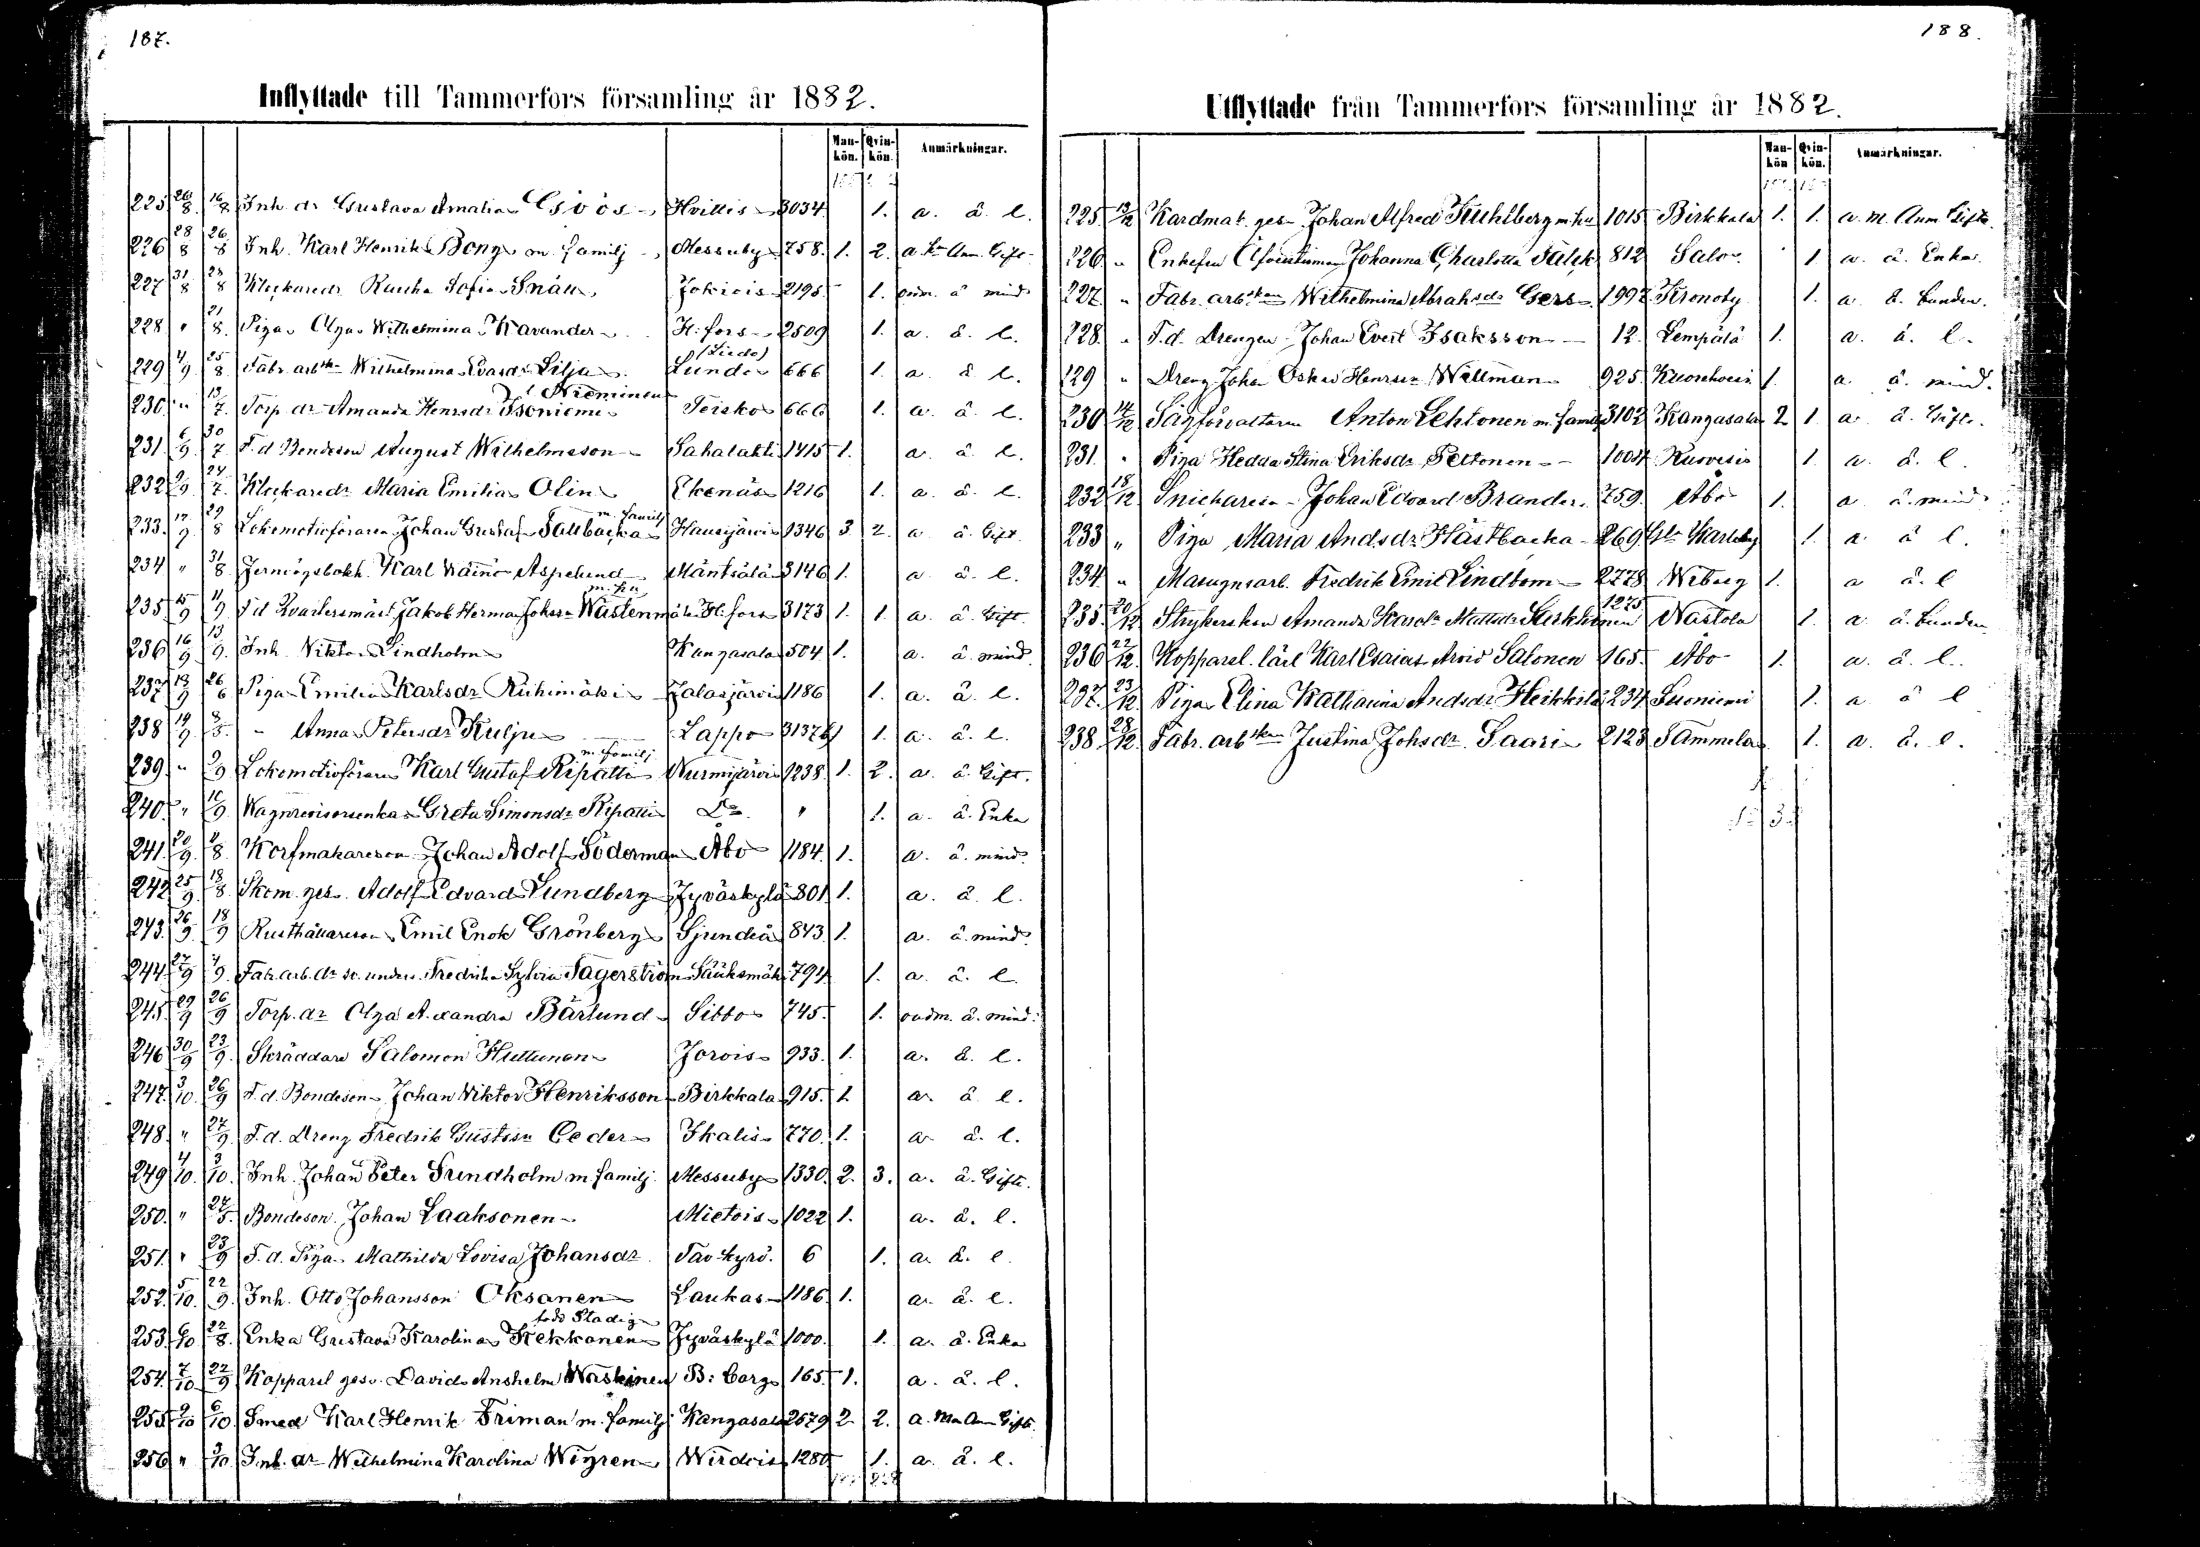 187.
Inflyttade till Tammerfors församling år 1882.
Mankön. Qvinkön. Anmärkningar.
225 26/8 16/8 Inh. dr Gustava Amalia Hvittis 3034 1. a. ä. l.
226 28/8 26/8 Inh. Karl Henrik Bong m. familj Messuby 758. 1. 2. a. Ann. Gift
227 31/8 28/8 Klockaredr Sofia Jokiois 2195 1. ä mind
228 " 21/8. Piga Olga Wilhelmina Kavander H:fors 2509 1. a. ä. l.
229 4/9 25/8. Fabr. arbskn Wilhelmina Lilja Lundo (Liedo) 666 1. a ä l.
230 " 13/7. Torp. dr Amanda Henrsdr Isoniemi Nieminen Teisko 666 1. a. ä. l.
231. 6/9 30/7 F. d. Bondeson August Wilhelmsson Sahalaks 1415 1. a ä l.
232 9/9 24/7. Klockaredr Maria Emilia Olin Ekenäs 1216 1. a. ä. l.
233. 17/9 29/8 Lokomotivföraren Johan Gustaf Tallbacka m. familj Hausjärvi 1346 3 2. a ä Gift
234 " 31/8. Jernvägsbokh. Karl Wäinö Aspelund Mäntsälä 3146 1. a ä. l.
235 15/9 11/9 F. d. Kvartersmäst. Jakob Herman Johsson Wästenmäki m. hu H:fors 3173 1. 1. a. ä. Gift.
236 16/9 13/9. Inh. Viktor Lindholm Kangasala 504 1. a. ä mind
237 18/9 26/6 Piga Emilia Karlsdr Riihimäki Jalasjärvi 1186 1. a. ä. l.
238 19/9 Anna Petersdr Kulju Lappo 3137 1. a. ä. l.
239 " 9/9 Lokomotivföraren Karl Gustaf Ripatti m. familj Nurmijärvi 1238. 1. 2. a. ä. Gift.
240. " 16/9. Wagnrevisorsenka Greta Simonsdr Ripatti Do. " 1. a. ä. Enka
241. 20/9. 9/8. Korfmakareson Johan Adolf Söderman Åbo 1184. 1. a. ä. mind.
242 25/9. 18/8 Skom. ges. Adolf Edvard Lundberg Jyväskylä 801 1. a. ä. l.
243. 26/9. 18/9 Rusthållareson Emil Enok Grönberg Sjundeå 843. 1. a. ä. mind.
244. 27/9 4/9. Fab. arb. dr Fredrika Sylvia Tagerström Sääksmäki 791 1. a. ä. l.
245. 29/9 26/9 Torp. dr Olga Alexandra Bärlund Sibbo 745. 1. oadm. ä. mind.
246 30/9 23/9. Skräddare Salomon Huttunen Jorois 933. 1. a. ä. l.
247. 3/10. 26/9 F. d. Bondeson Johan Viktor Henriksson Birkkala 915. 1. a. ä. l.
248. " 27/9. F. d. Dreng Fredrik Gustsson Ceder Ikalis 770. 1. a. ä. l.
249 4/10. 3/10. Inh. Johan Peter Sundholm m. familj Messuby 1330. 2. 3. a. ä. Gifte.
250. " 24/5. Bondeson Johan Laaksonen Mietois 1022 1. a. ä. l.
251. " 23/9 F. d. Piga Mathilda Lovisa Johansdr Tavkyrö. 6 1. a. ä. l.
252. 5/10. 22/9. Inh. Otto Johansson Oksanen Laukas 1186 1. a. ä. l.
253. 6/10 22/8. Enka Gustava Karolina Kekkonen född Stadig Jyväskylä 1000. 1. a. ä. Enka
254. 7/10 22/9 Kopparsl. ges. David Anshelm Waskinen B:borg 165. 1. a. ä. l.
255 9/10 6/10. Smed Karl Henrik Friman m. familj Kangasala 2679 2 2. a. m. Ann. Gifte.
256 " 3/10. Inh. dr Wilhelmina Karolina Wigren Wirdois 1280 1. a. ä. l.
188.
Utflyttade från Tammerfors församling år 1882.
Mankön Qvinkön. Anmärkningar.
225. 13/12 Kardmak. ges. Johan Alfred Kuhlberg m. hu 1015 Birkkala 1. 1. a. m. Anm. Gifte.
226. " Enkefru Johanna Charlotta Falck 812 Salo 1 a. ä. Enka.
227. " Fabr. arbskn Wilhelmina Abrahsdr Gers 1997 Kronoby 1. a. ä. bunden.
228. " F. d. Drengen Johan Evert Isaksson 12. Lempälä 1. a. ä. l.
229 " Dreng Johan Oskar Henrsson Wallman 925. Kuorehvesi 1. a ä. mind.
230 14/12 Sågförvaltaren Anton Lehtonen m. familj 3102 Kangasala 2 1 a. ä. Gifte.
231. " Piga Hedda Stina Eriksdr Peltonen 1004 Kuorvesi 1. a. ä. l.
232 18/12 Snickareson Johan Edvard Brander 759. Åbo 1. a ä. mind.
233 " Piga Maria Andsdr Hästbacka 269 Gla Karleby 1. a. ä l.
234 " Masugnsarb. Fredrik Emil Lindbom 2778 Wiborg 1. a ä. l
235. 20/12 Strykerskan Amanda Karola Mattsdr 1275 Nastola 1. a ä. bunden
236 22/12. Kopparsl. lärl. Karl Esaias Arvid Salonen 165. Åbo 1. a. ä. l.
237. 23/12. Piga Elina Katharina Andsdr Heikkilä 234 Suoniemi 1. a ä l
238 28/12. Fabr. arbskan Justina Johsdr Saari 2123 Tammela 1. a. ä. l.